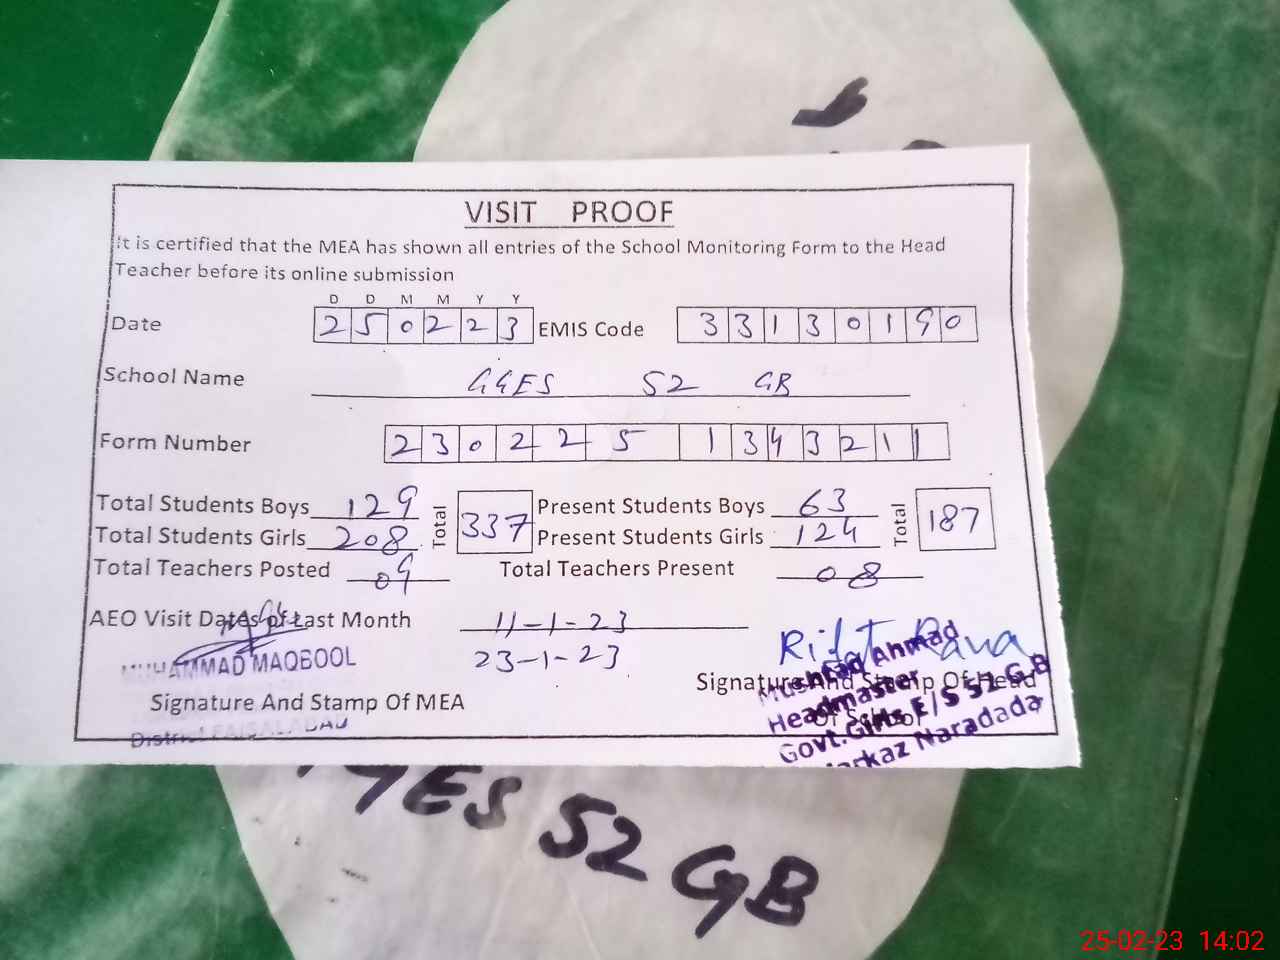 VISIT PROOF
It is certified that the MEA has shown all entries of the School Monitoring Form to the Head
Teacher before its online submission
D D M M Y Y
Date 250223 EMIS Code 33130190
School Name GGES 52 GB
Form Number 230225 1343211
Total Students Boys 129 Total 337 Present Students Boys 63 Total 187
Total Students Girls 208 Present Students Girls 124
Total Teachers Posted 09 Total Teachers Present 08
AEO Visit Dates of Last Month 11-1-23
23-1-23
MUHAMMAD MAQBOOL
Signature And Stamp Of MEA
District FAISALABAD
Rifat Rana
Signature And Stamp Of Head
Of School
Mushtaq Ahmad
Headmaster
Govt.Girls E/S 52 G.B
Markaz Naradada
GGES 52 GB
25-02-23 14:02